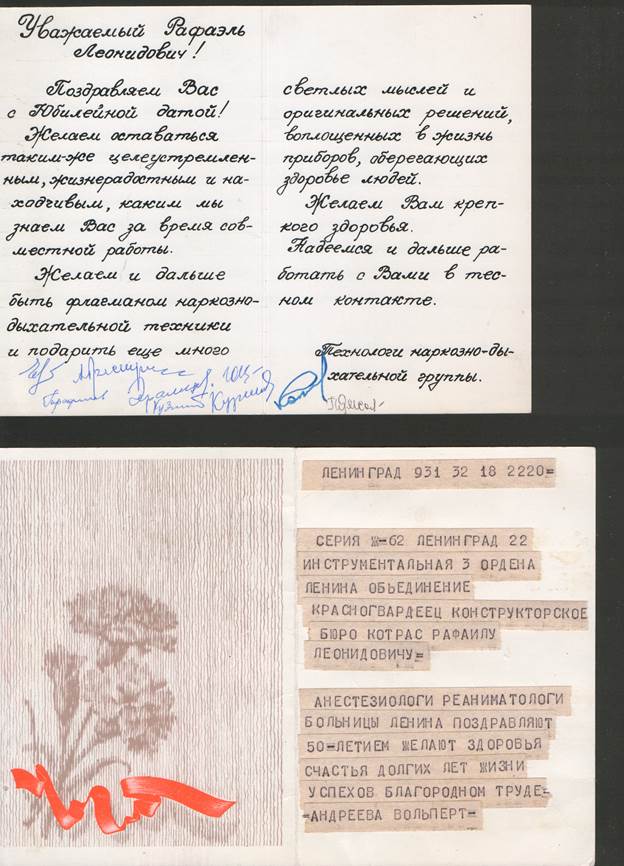 Уважаемый Рафаэль
Леонидович!
Поздравляем Вас
с Юбилейной датой!
Желаем оставаться
таким-же целеустремлен-
ным, жизнерадостным и на-
ходчивым, каким мы
знаем Вас за время сов-
местной работы.
Желаем и дальше
быть флагманом наркозно-
дыхательной техники
и подарить еще много
светлых мыслей и
оригинальных решений,
воплощенных в жизнь
приборов, оберегающих
здоровье людей.
Желаем Вам креп-
кого здоровья.
Надеемся и дальше ра-
ботать с Вами в тес-
ном контакте.
Технологи наркозно-ды-
хательной группы.
ЛЕНИНГРАД 931 32 18 2220=
СЕРИЯ Ж-62 ЛЕНИНГРАД 22
ИНСТРУМЕНТАЛЬНАЯ 3 ОРДЕНА
ЛЕНИНА ОБЬЕДИНЕНИЕ
КРАСНОГВАРДЕЕЦ КОНСТРУКТОРСКОЕ
БЮРО КОТРАС РАФАИЛУ
ЛЕОНИДОВИЧУ=
АНЕСТЕЗИОЛОГИ РЕАНИМАТОЛОГИ
БОЛЬНИЦЫ ЛЕНИНА ПОЗДРАВЛЯЮТ
50-ЛЕТИЕМ ЖЕЛАЮТ ЗДОРОВЬЯ
СЧАСТЬЯ ДОЛГИХ ЛЕТ ЖИЗНИ
УСПЕХОВ БЛАГОРОДНОМ ТРУДЕ=
=АНДРЕЕВА ВОЛЬПЕРТ=